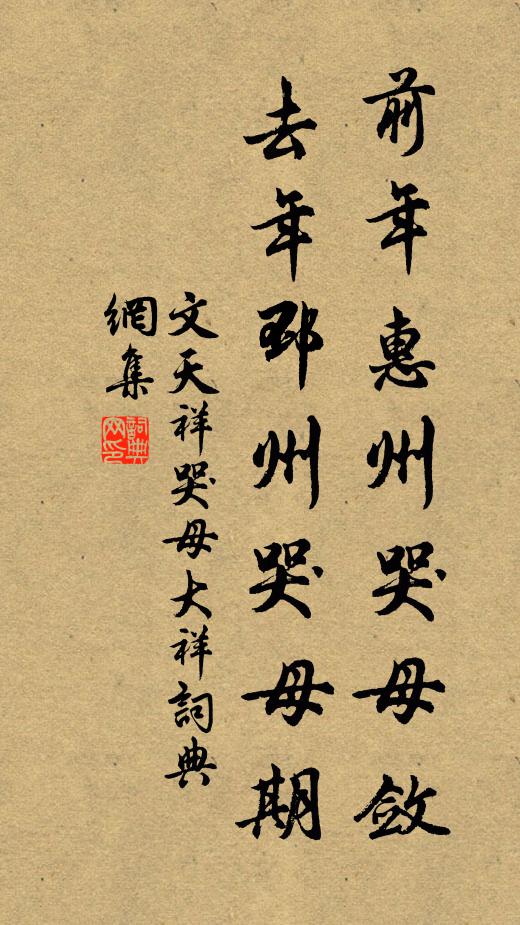 前年惠州哭母斂
去年邳州哭母期
文天祥哭母大祥詞典
網集
詞典網印